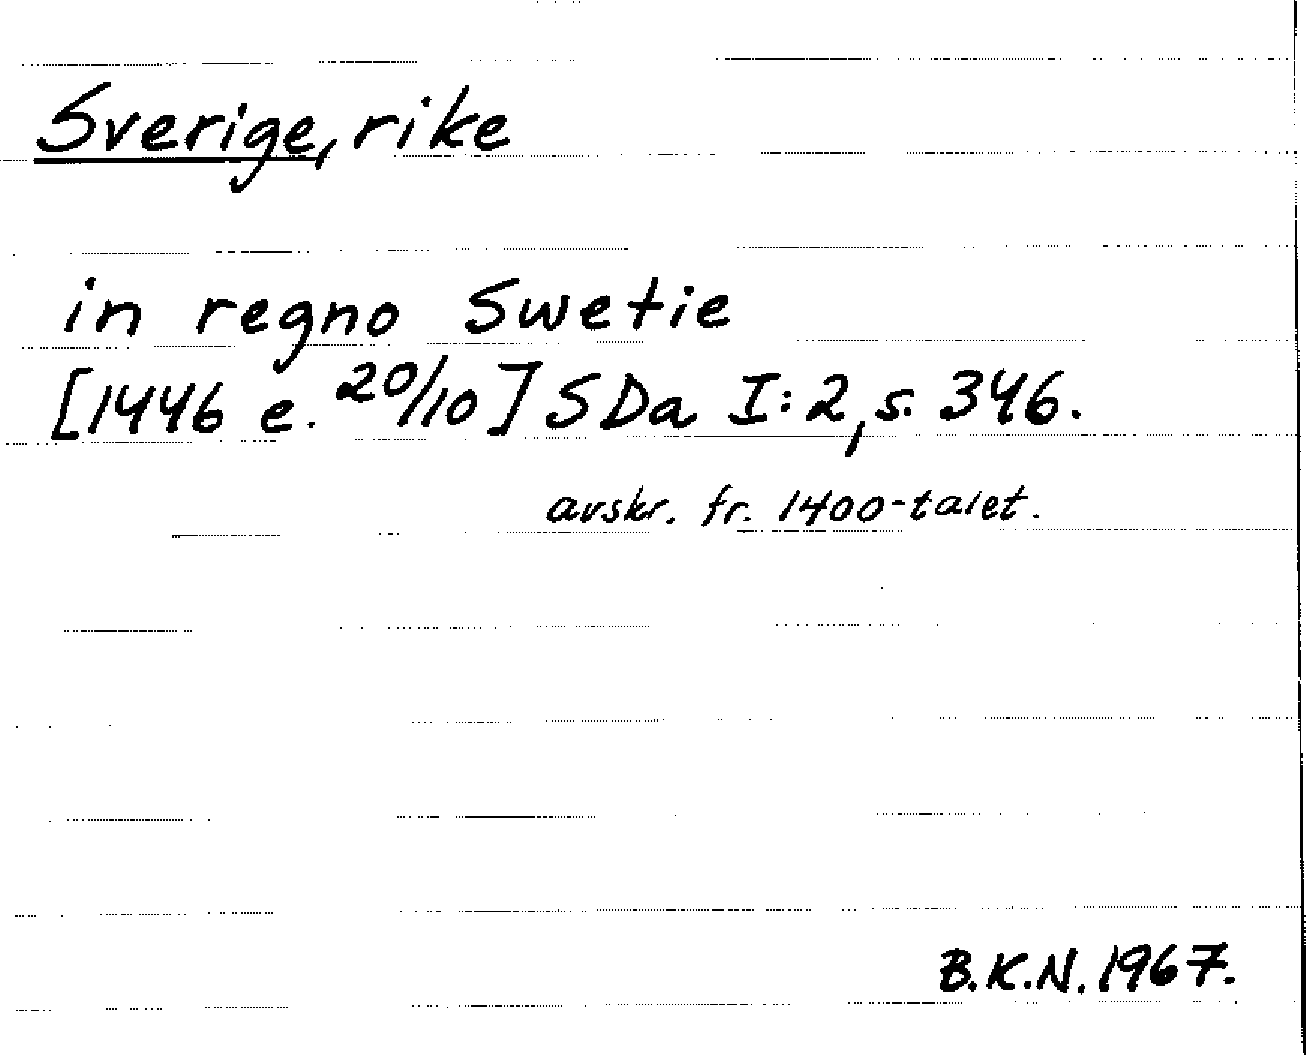 Sverige, rike
in regno Swetie
[1446 e. 20/10] SDa I:2, s. 346.
avskr. fr. 1400-talet.
B.K.N. 1967.